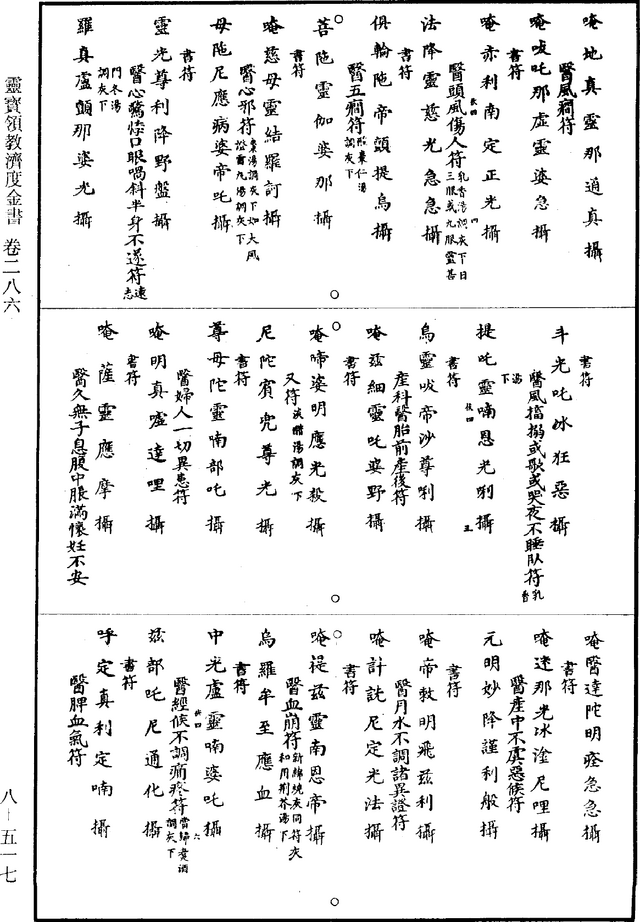 靈寶領教濟度金書 卷二八六
唵地真靈那通真攝
醫風癇符
唵吱吒那虛靈婆急攝
書符
唵赤利南定正光攝
醫頭風傷人符乳香湯調灰下日三服或九服靈甚
法降靈慈光急急攝
書符
俱輪陁帝頭提烏攝
醫五癇符酸棗仁湯調灰下
菩陁靈伽婆那攝
書符
唵慈母靈結羅訂攝
醫心邪符
母陁尼應病婆帝吒攝
書符
靈光尊利降野盤攝
醫心驚悸口眼喎斜半身不遂符
門冬湯調灰下
羅真盧顫那婆光攝
書符
斗光吒冰狂惡攝
醫風搐搦或歌或哭夜不睡臥符乳香湯下
提吒靈喃恩光唎攝
書符
烏靈吱帝沙尊唎攝
產科醫胎前產後符
唵茲細靈吒婆野攝
書符
唵啼婆明應光殺攝
又符淡醋湯調灰下
尼陀賓兜尊光攝
書符
尊母陀靈喃部吒攝
醫婦人一切異患符
唵明真嚧達哩攝
書符
唵薩靈應摩攝
醫久無子息腹中脹滿懷妊不安
唵醫達陀明痊急急攝
書符
唵速那光冰淦尼哩攝
醫產中不虞惡候符
元明妙降謹利般攝
書符
唵帝救明飛茲利攝
醫月水不調諸異證符
唵計詫尼定光法攝
書符
唵禔茲靈南恩帝攝
醫血崩符新綿燒灰同符灰和用荊芥湯下
烏羅牟至應血攝
書符
中光盧靈喃婆吒攝
醫經候不調痛疼符當歸煮酒調灰下
茲部吒尼通化攝
書符
呼定真利定喃攝
醫脾血氣符
八－五一七